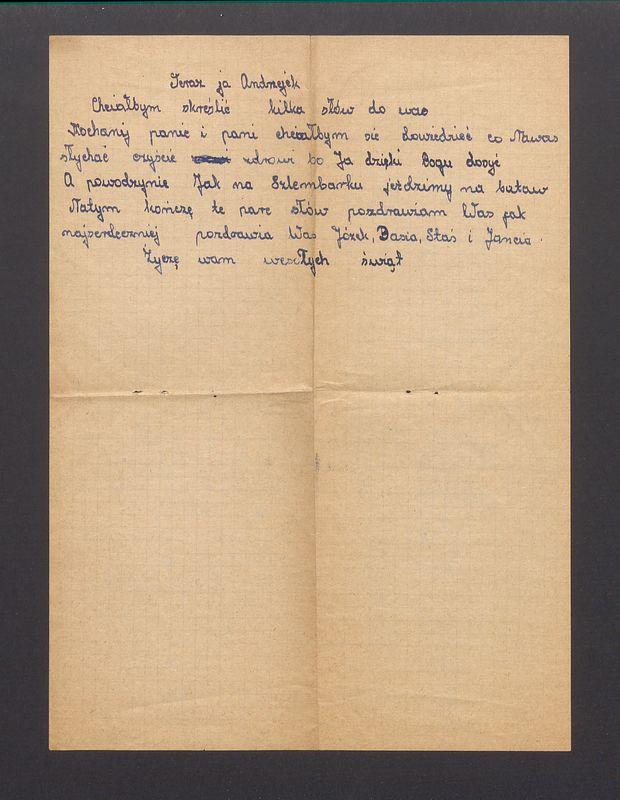 Teraz ja Andrzejek
Chciałbym skreślić kilka słów do was
Kochanij panie i pani chciałbym sie dowiedzieć co Nawas
słychać czyście zdrowi bo Ja dzięki Bogu dosyć
A powodzynie Jak na Szlembarku jeździmy na butaw
Natym kończę te pare słów pozdrawiam Was jak
najserdeczniej pozdrawia Was Józek, Basia, Staś i Jancia.
Życzę wam wesołych świąt